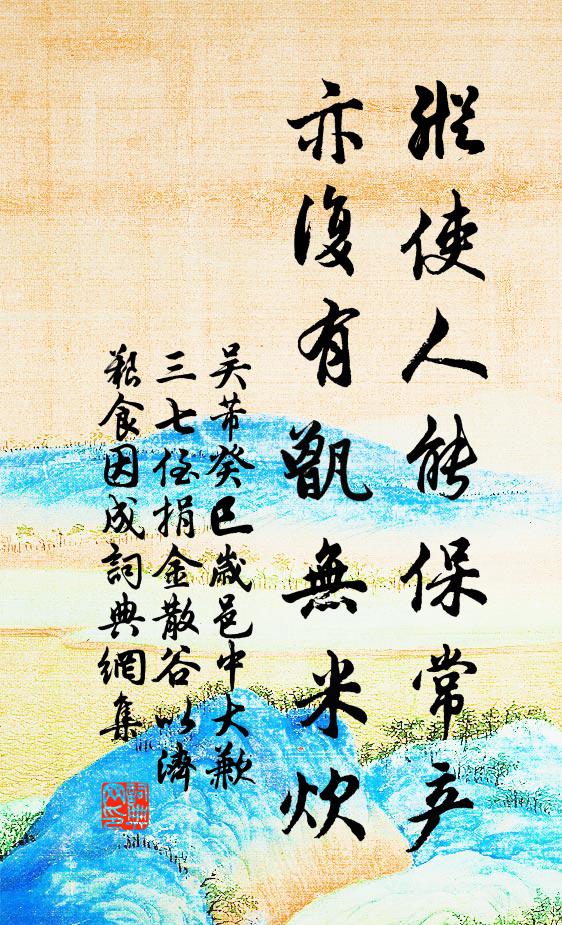 縱使人能保常产
亦復有甑無米炊
吴芾癸巳歲邑中大歉
三七侄捐金散谷以濟
艱食因成詞典網集